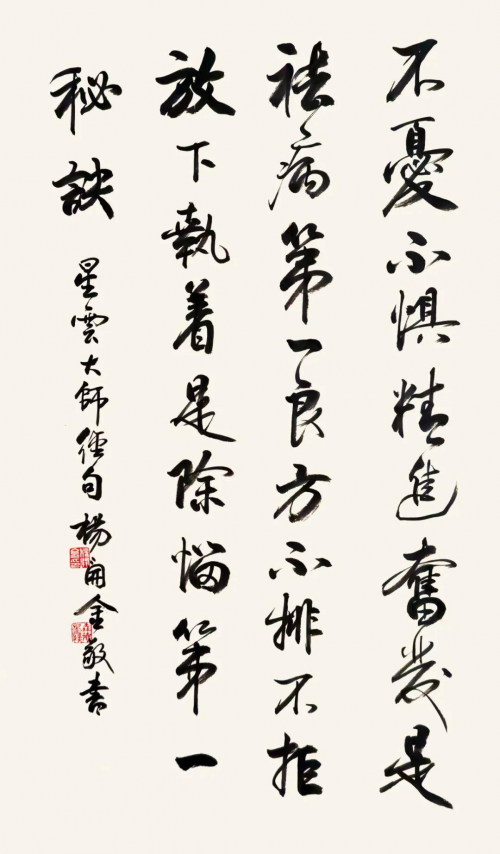 不憂不惧精進奮發是
祛病第一良方不排不拒
放下執着是除惱第一
秘訣
星雲大師句楊金敬書